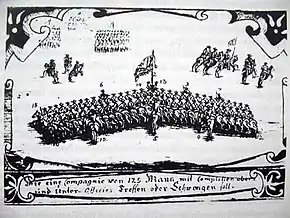 Wie eine Compagnie von 125 Mann mit Completten ober
und Unter Officirs. Treffen oder Schwengen soll.